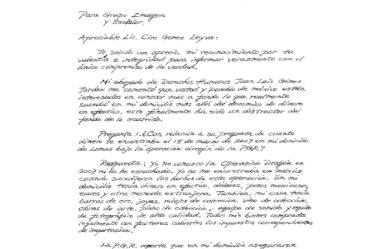 Para Grupo Imagen
y Excélsior,
Apreciable Lic. Ciro Gómez Leyva:
Te saludo con aprecio, mi reconocimiento por tu
valentía e integridad para informar verazmente con el
único compromiso de la verdad.
Mi abogado de Derechos Humanos Juan Luis Gómez
Jardón me comentó que usted y pueblo de méxico están
interesados en conocer más a fondo lo que realmente
sucedió en mi domicilio más allá del decomiso de dinero
en efectivo, este finalmente ha sido un distractor del
fondo de lo ocurrido.
Pregunta 1. ¿Con relación a su pregunta de cuanto
dinero se encontraba el 15 de marzo de 2007 en mi domicilio
de Lomas bajo la operación dragón de la PGR?
Respuesta: Yo no conozco la Operación Dragón en
2007 ni la he escuchado. Yo no me encontraba en México
cuando sucedieron los hechos de esta operación. En mi
domicilio tenía dinero en efectivo, dólares, pesos mexicanos,
euros y otra moneda extranjera. También, mi casa tenía
barras de oro, joyas, relojes de colección, vino de colección,
obras de arte, pieles de colección, equipo de sonido y equipo
de fotografía de alta calidad. Todos mis bienes comprados
legalmente con facturas cubiertos los impuestos correspondientes
de importación.
La P.G.R. reporta que en mi domicilio aseguraron